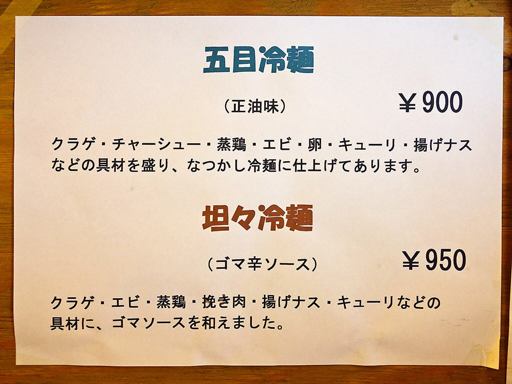 五目冷麺
（正油味）
￥900
クラゲ・チャーシュー・蒸鶏・エビ・卵・キューリ・揚げナス
などの具材を盛り、なつかし冷麺に仕上げてあります。
坦々冷麺
（ゴマ辛ソース）
￥950
クラゲ・エビ・蒸鶏・挽き肉・揚げナス・キューリなどの
具材に、ゴマソースを和えました。